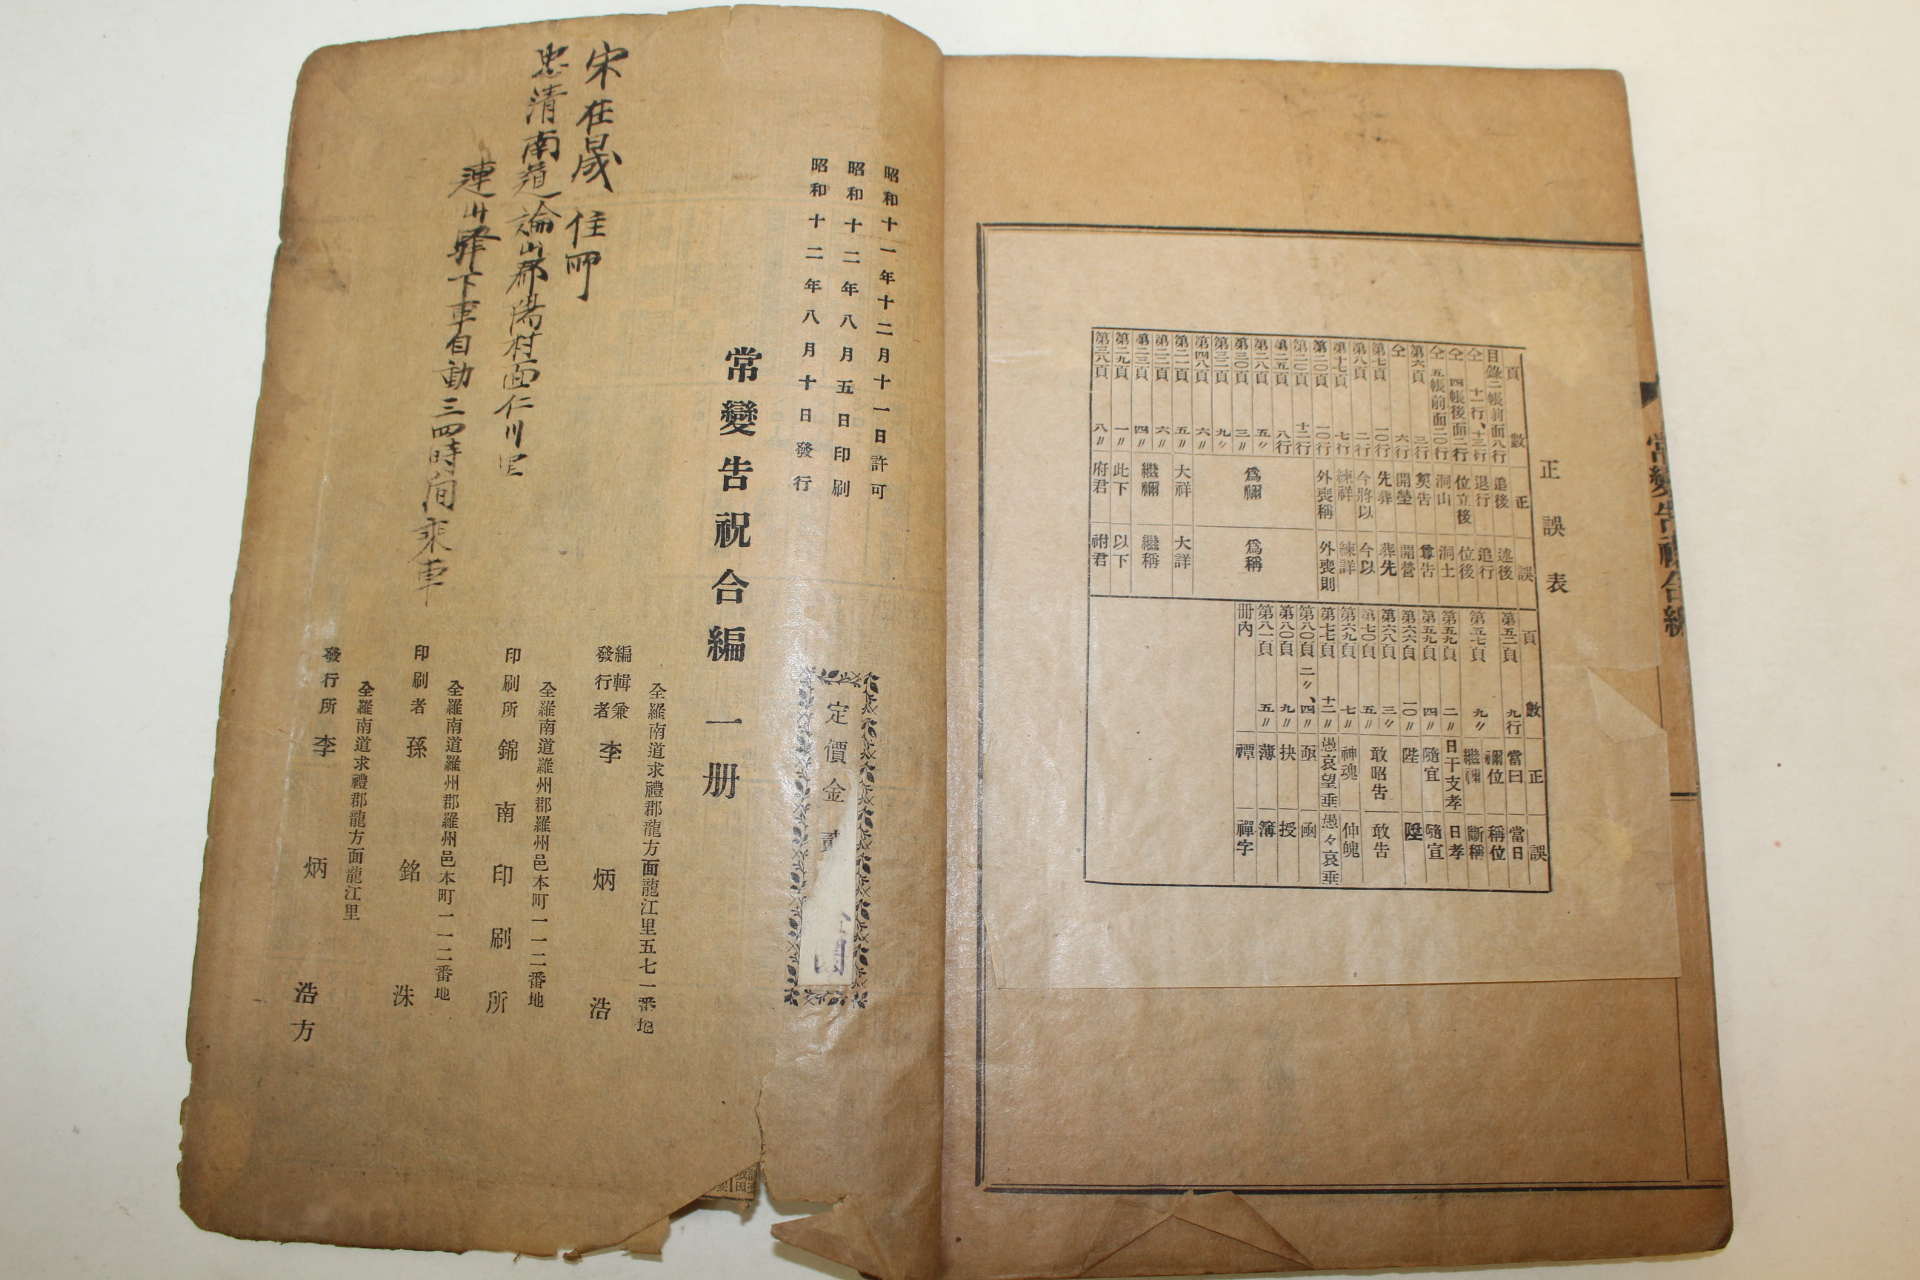 常變告祝合編
正誤表
頁 數 正 誤
目錄二帳前面八行 追後 述後
仝 十一行、十三行 退行 追行
仝 四帳後面二行 位立後 位後
仝 五帳前面二〇行 洞山 洞土
第六頁 三行 奠告 尊告
仝 六行 開塋 開營
第七頁 一〇行 先葬 葬先
第八頁 二行 今將以 今以
第十七頁 七行 練祥 練詳
第二〇頁 一〇行 外喪稱 外喪則
第二〇頁 十二行
第二五頁 八行
第二八頁 五〃
第三〇頁 三〃 爲禰 爲稱
第三二頁 九〃
第四八頁 六〃
第二一頁 五〃 大祥 大詳
第二二頁 六〃
第二三頁 四〃 繼禰 繼稱
第二九頁 一〃 此下 以下
第三八頁 八〃 府君 祔君
頁 數 正 誤
第五二頁 九行 當曰 當日
禰位 稱位
第五七頁 九〃 繼禰 斷稱
第五九頁 二〃 日干支孝 日孝
第五九頁 四〃 隨宜 隨宣
第六六頁 一〇〃 陞
第六八頁 三〃
第七〇頁 五〃 敢昭告 敢告
第六九頁 七〃 神魂 伸魄
第七七頁 十二〃 愚哀望垂 愚々哀垂
第八〇頁 二〃、四〃 亟 函
第八〇頁 九〃 抉 授
第八一頁 五〃 薄 簿
冊內 禫 禪字
昭和十一年十二月十一日許可
昭和十二年八月五日印刷
昭和十二年八月十日發行
定價金
常變告祝合編 一册
全羅南道求禮郡龍方面龍江里五七一番地
編輯兼發行者 李炳浩
全羅南道羅州郡羅州邑本町一一二番地
印刷所 錦南印刷所
全羅南道羅州郡羅州邑本町一一二番地
印刷者 孫銘洙
全羅南道求禮郡龍方面龍江里
發行所 李炳浩方
宋在晟 住所
忠淸南道論山郡陽村面仁川里
連山驛下車自動三四時間乘車